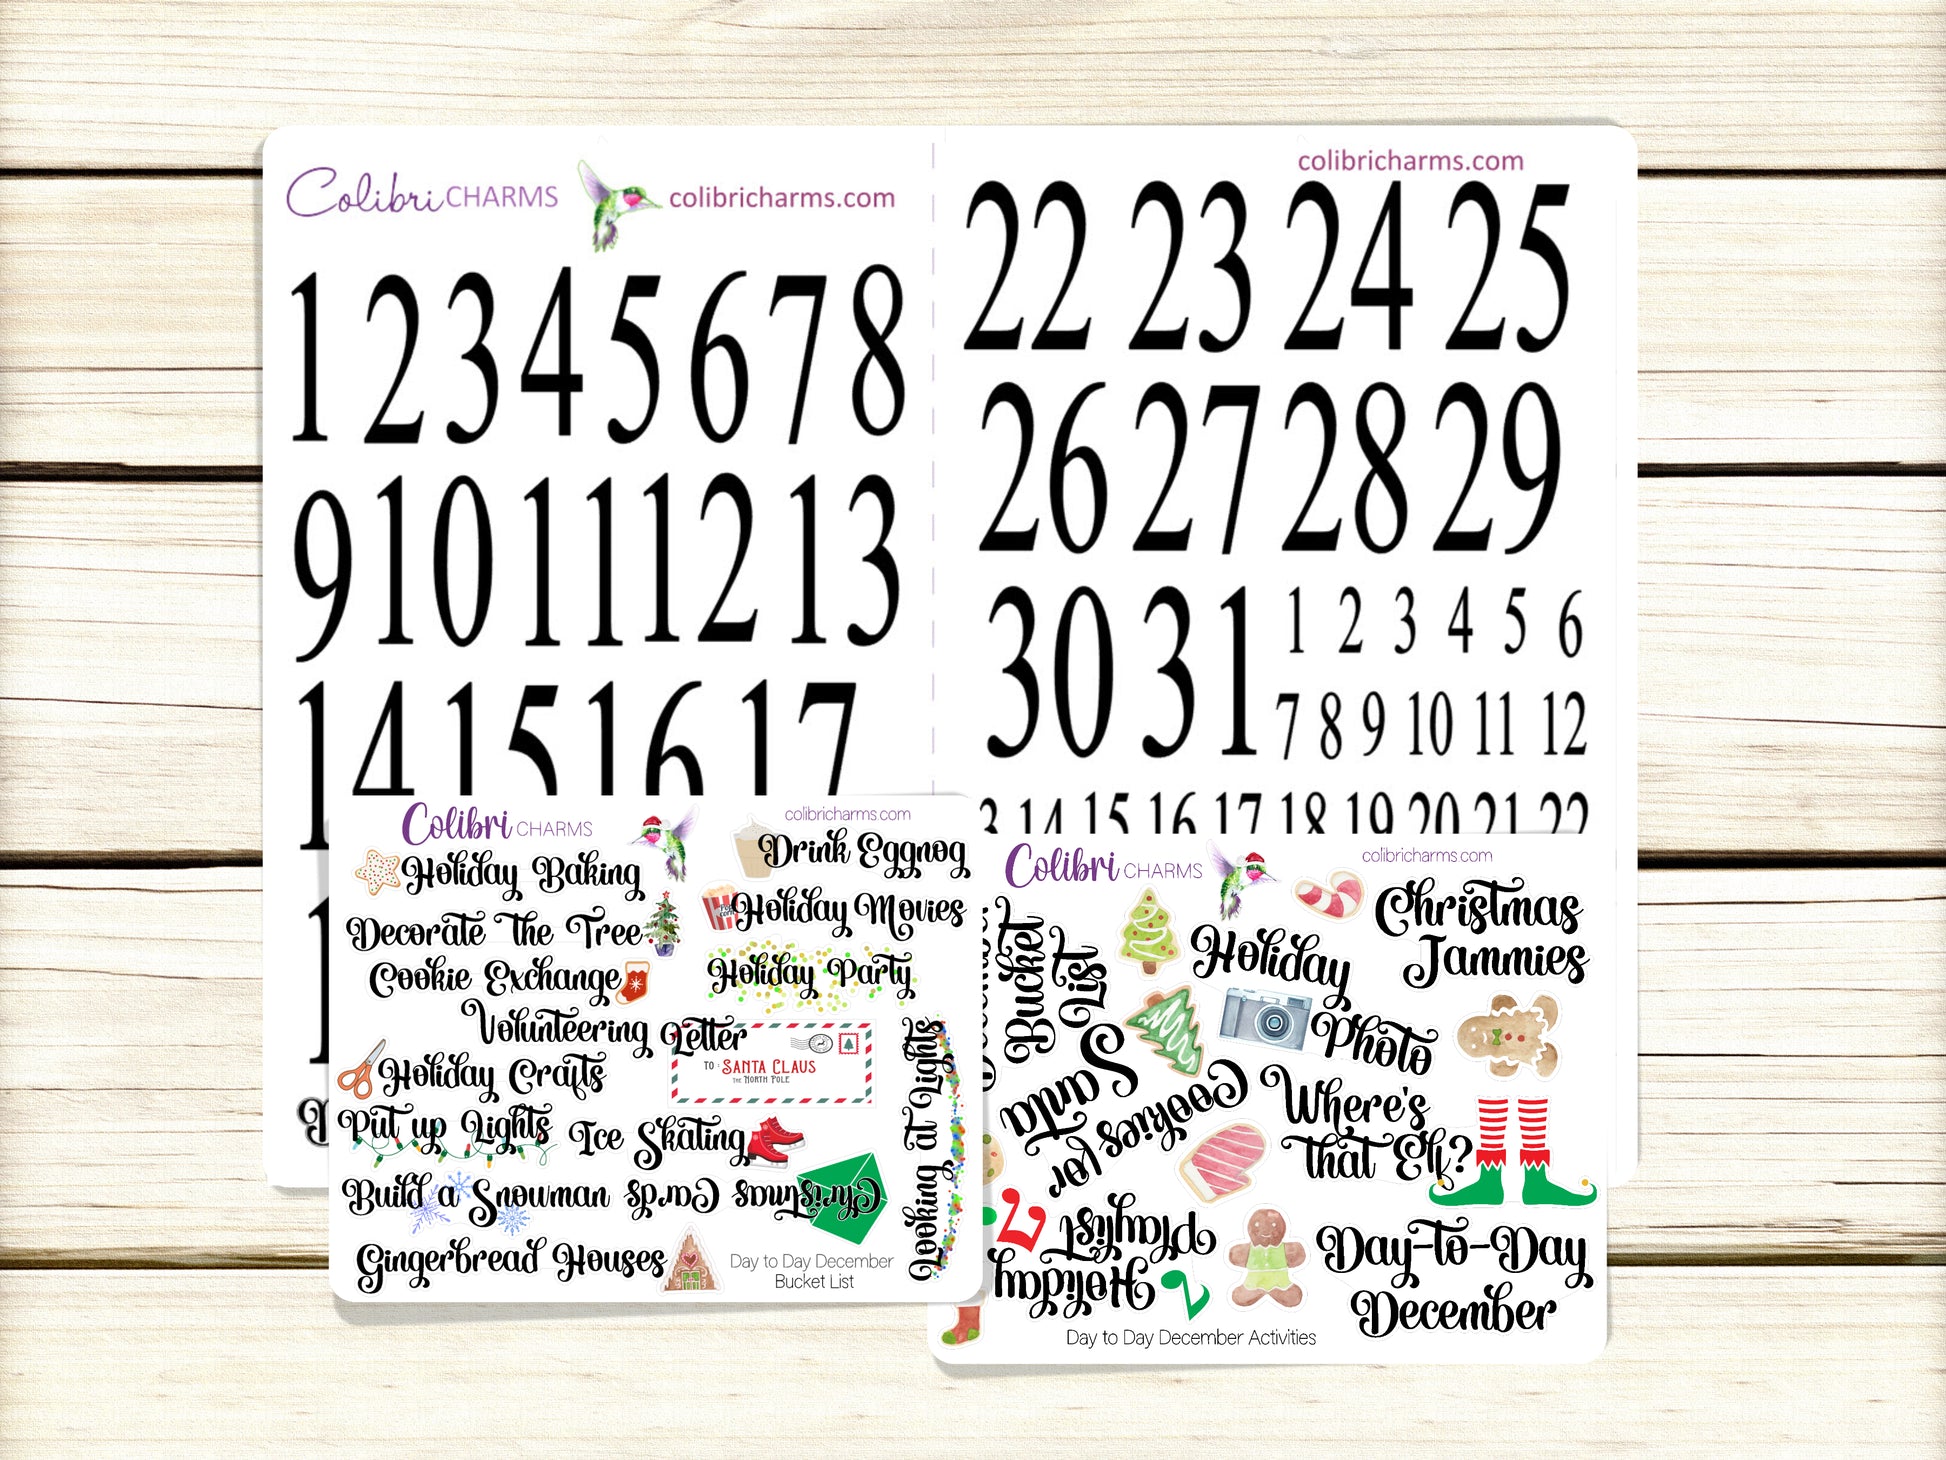 Colibri CHARMS colibricharms.com
1 2 3 4 5 6 7 8
9 10 11 12 13
14 15 16 17
colibricharms.com
22 23 24 25
26 27 28 29
30 31
1 2 3 4 5 6
7 8 9 10 11 12
14 15 16 17 18 19 20 21 22
Colibri CHARMS
colibricharms.com
Holiday Baking
Drink Eggnog
Decorate the Tree
Holiday Movies
Cookie Exchange
Holiday Party
Volunteering
Letter
TO: SANTA CLAUS
THE NORTH POLE
Holiday Crafts
Put up Lights
Ice Skating
Build a Snowman
Christmas Cards
Looking at Lights
Gingerbread Houses
Day to Day December
Bucket List
Colibri CHARMS
colibricharms.com
Bucket
List
Christmas
Jammies
Holiday
Photo
Cookies for
Santa
Where's
that Elf?
Holiday
Playlist
Day-to-Day
December
Day to Day December Activities